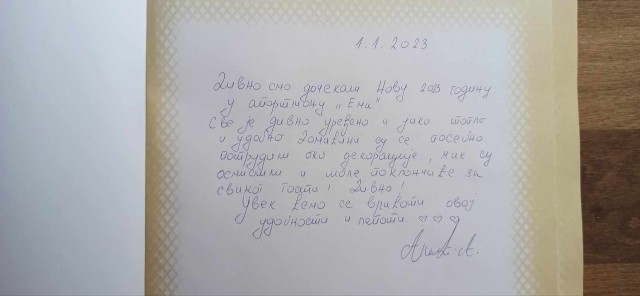 1.1.2023
Дивно смо дочекали Нову 2023 годину
у апартману „Ема“
Све је дивно уређено и јако топло
и удобно Домаћини су се посебно
потрудили око декорације, чак су
осмислили и мале поклончиће за
сваког госта! Дивно!
Увек ћемо се враћати овај
удобности и лепоти ♡♡♡